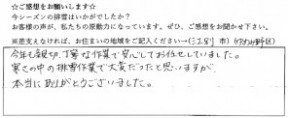 ☆ご感想をお願いします☆
今シーズンの排雪はいかがでしたか?
お客様の声が、私たちの原動力になっています。ぜひ、ご感想をお聞かせ下さい。
※差支えなければ、お住まいの地域をご記入ください→(江別 市)(野区)
今年も親切、丁寧な作業で安心してお任せしていました。
寒さの中の排雪作業で大変だったと思いますが
本当にありがとうございました。